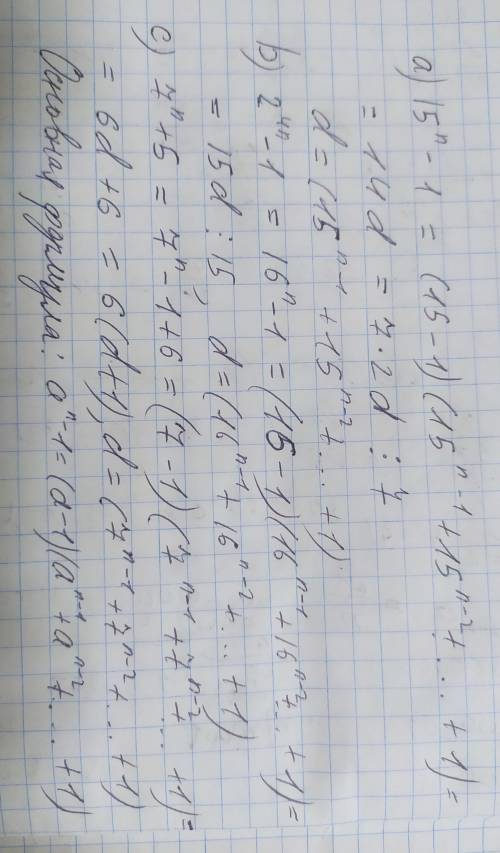 a) 15ⁿ - 1 = (15-1)(15ⁿ⁻¹ + 15ⁿ⁻² + ... + 1) =
= 14d = 7·2d ⋮ 7
d = (15ⁿ⁻¹ + 15ⁿ⁻² + ... + 1)
b) 2⁴ⁿ - 1 = 16ⁿ - 1 = (15-1)(16ⁿ⁻¹ + 16ⁿ⁻² + ... + 1) =
= 15d ⋮ 15, d = (16ⁿ⁻¹ + 16ⁿ⁻² + ... + 1)
c) 7ⁿ + 5 = 7ⁿ - 1 + 6 = (7-1)(7ⁿ⁻¹ + 7ⁿ⁻² + ... + 1) =
= 6d + 6 = 6(d+1), d = (7ⁿ⁻¹ + 7ⁿ⁻² + ... + 1)
Основная формула: aⁿ - 1 = (a-1)(aⁿ⁻¹ + aⁿ⁻² + ... + 1)